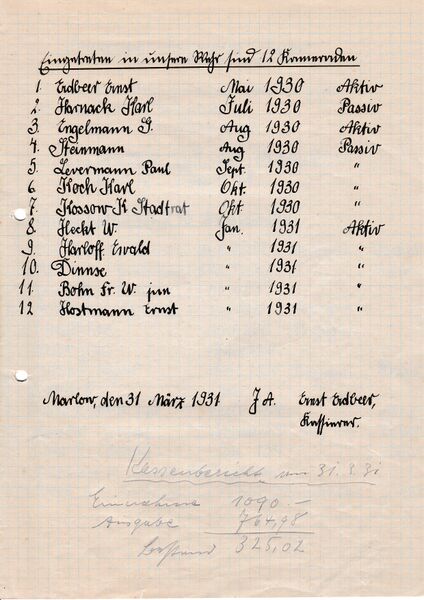 Eingetreten in unsere Wehr sind 12 Kameraden
1. Erdbeer Ernst Mai 1930 Aktiv
2. Harnack Karl Juli 1930 Passiv
3. Engelmann G. Aug 1930 Aktiv
4. Steinmann Aug 1930 Passiv
5. Levermann Paul Sept. 1930 "
6. Koch Karl Okt. 1930 "
7. Kossow K Stadtrat Okt 1930 "
8. Heckt W. Jan. 1931 Aktiv
9. Harloff Ewald " 1931 "
10. Dinnse " 1931 "
11. Bohn Fr. W. jun " 1931 "
12 Hostmann Ernst " 1931 "
Marlow, den 31 März 1931 J A. Ernst Erdbeer,
Kassierer.
Kassenbericht vom 31.3.31
Einnahme 1090.-
Ausgabe 764,98
Bestand 325,02